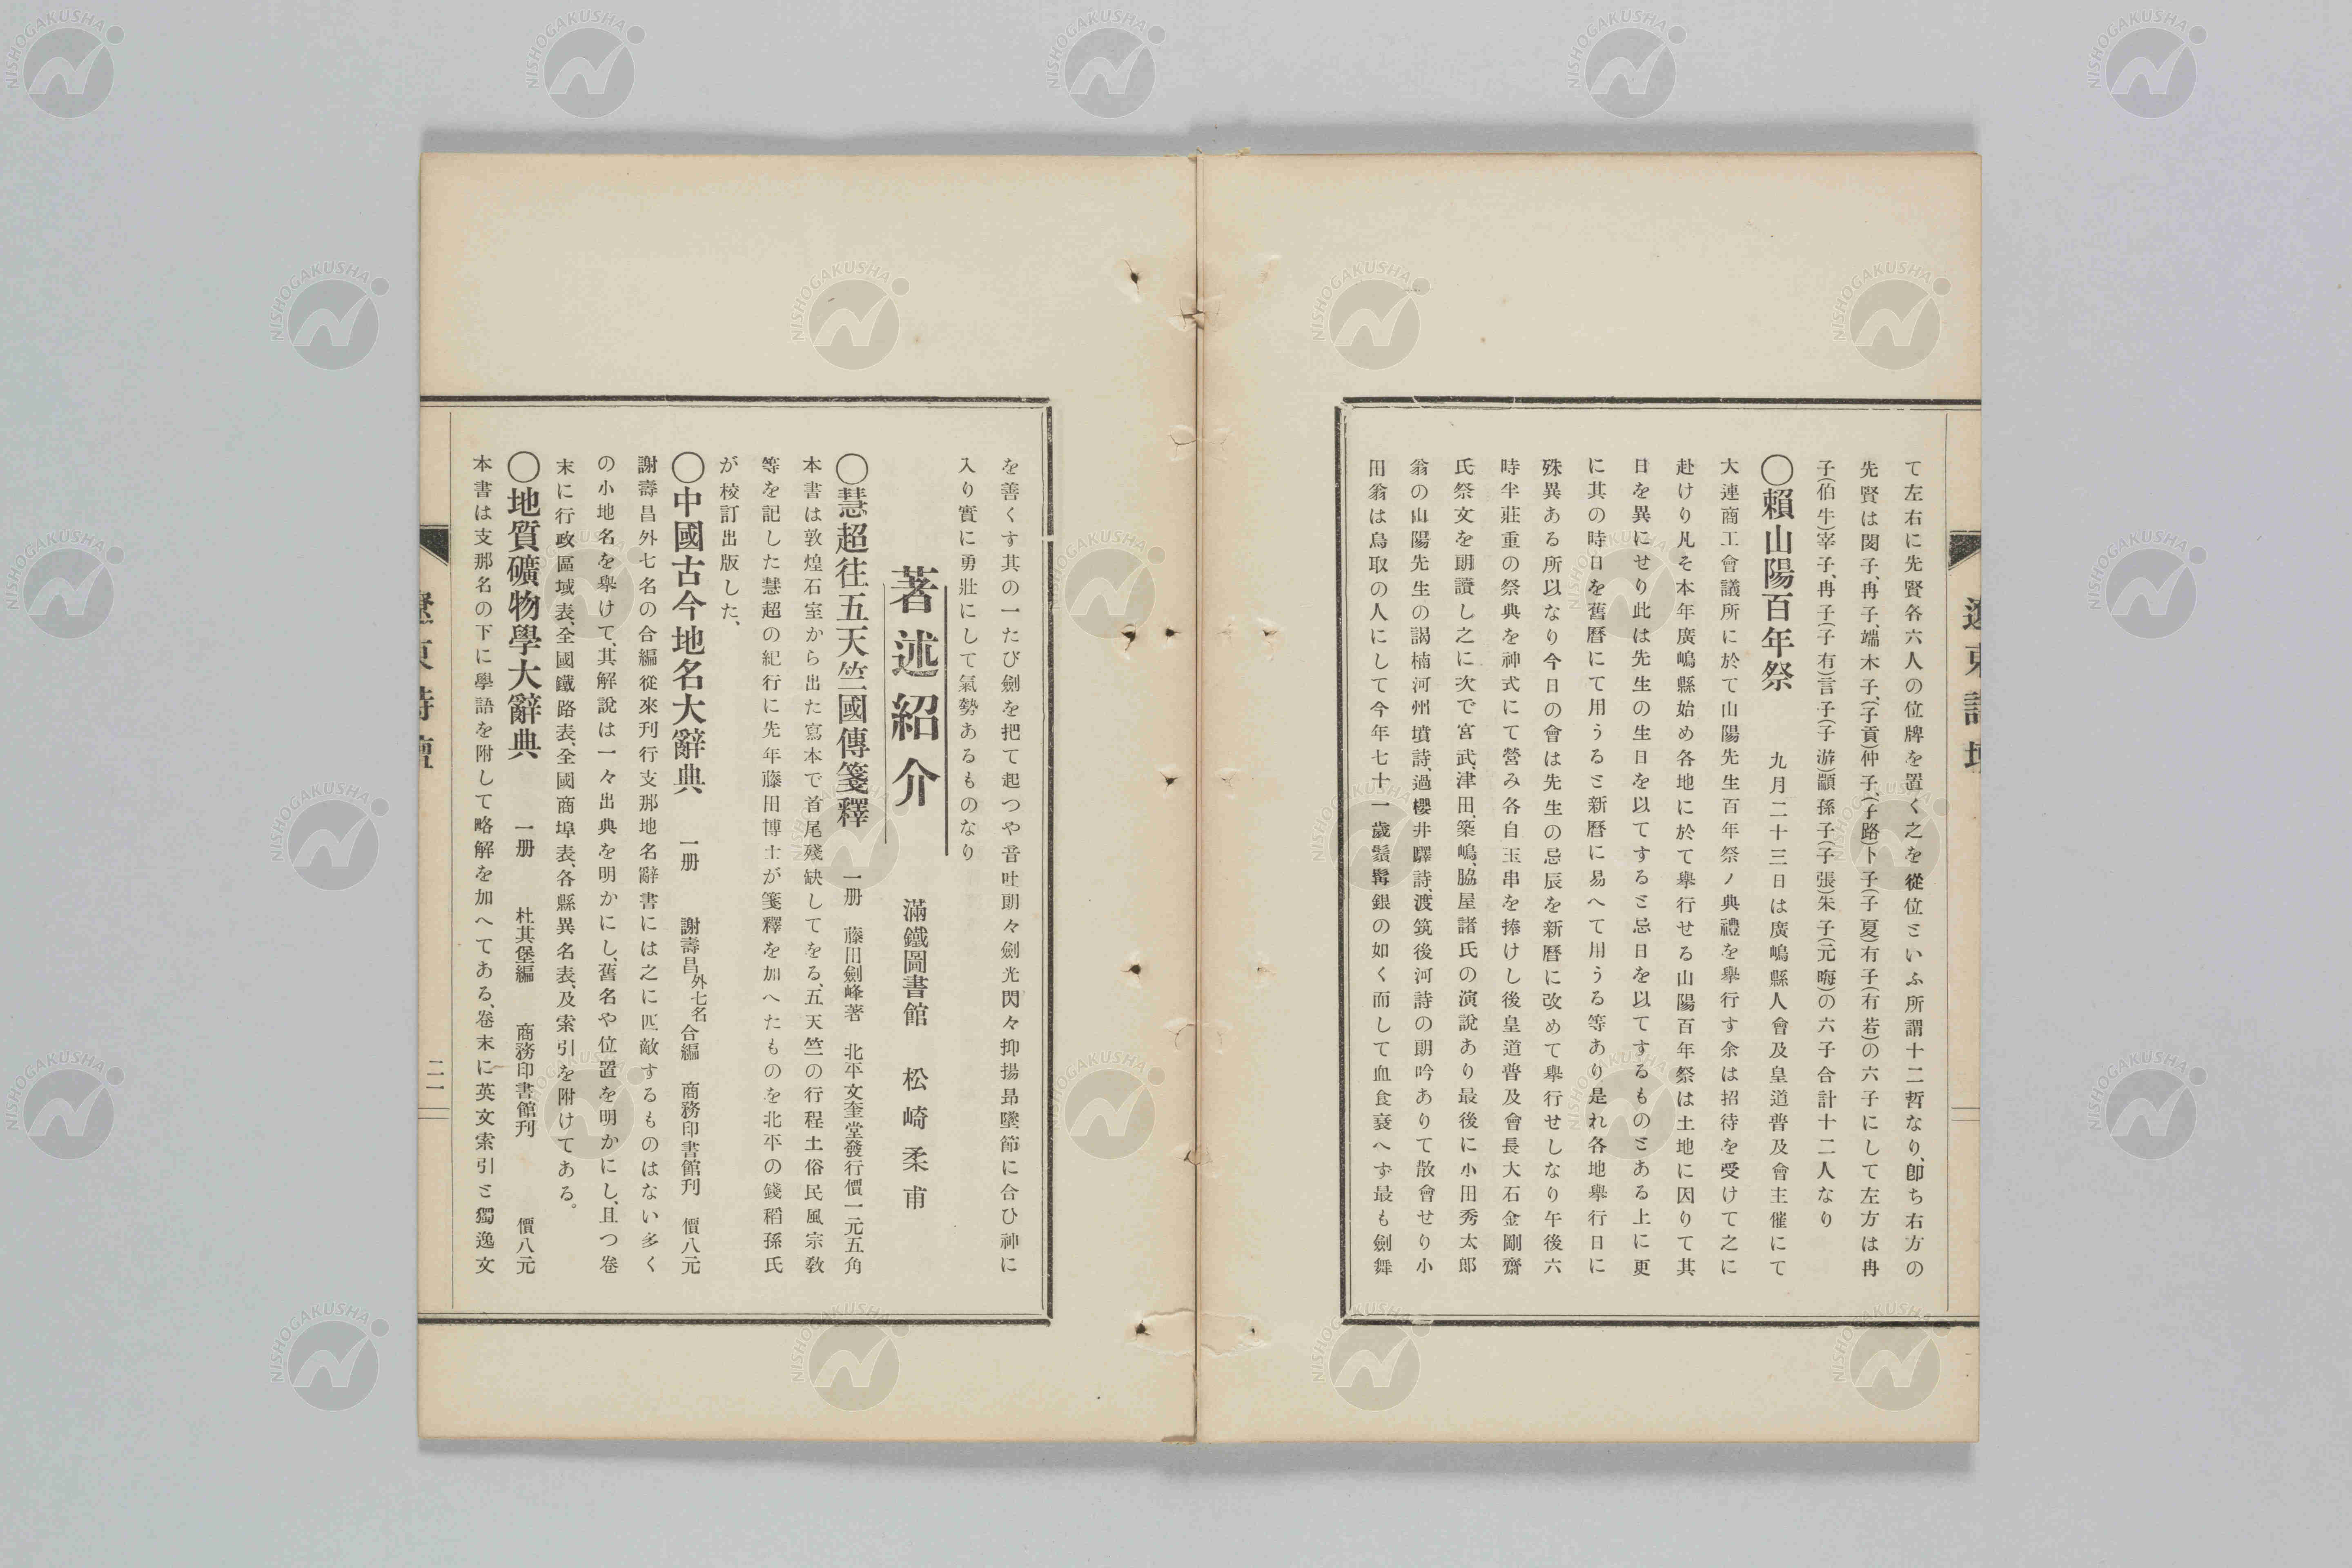 て左右に先賢各六人の位牌を置く之を從位といふ所謂十二哲なり、卽ち右方の
先賢は閔子、冉子、端木子、(子貢)仲子、(子路)卜子(子夏)有子(有若)の六子にして左方は冉
子(伯牛)宰子、冉子(子有)言子(子游)顓孫子(子張)朱子(元晦)の六子合計十二人なり
〇賴山陽百年祭 九月二十三日は廣嶋縣人會及皇道普及會主催にて
大連商工會議所に於て山陽先生百年祭ノ典禮を擧行す余は招待を受けて之に
赴けり凡そ本年廣嶋縣始め各地に於て擧行せる山陽百年祭は土地に因りて其
日を異にせり此は先生の生日を以てすると忌日を以てするものとある上に更
に其の時日を舊曆にて用うると新曆に易へて用うる等あり是れ各地擧行日に
殊異ある所以なり今日の會は先生の忌辰を新曆に改めて擧行せしなり午後六
時半莊重の祭典を神式にて營み各自玉串を捧けし後皇道普及會長大石金剛齋
氏祭文を朗讀し之に次で宮武、津田、築嶋、脇屋諸氏の演說あり最後に小田秀太郎
翁の山陽先生の謁楠河州墳詩、過櫻井驛詩、渡筑後河詩の朗吟ありて散會せり小
田翁は鳥取の人にして今年七十一歲鬚髯銀の如く而して血食衰へず最も劍舞
を善くす其の一たび劍を把て起つや音吐朗々劍光閃々抑揚昻墜節に合ひ神に
入り實に勇壯にして氣勢あるものなり
著述紹介 滿鐵圖書館 松崎柔甫
〇慧超往五天竺國傳箋釋 一册 藤田劍峰著 北平文奎堂發行價一元五角
本書は敦煌石室から出た寫本で首尾殘缺してをる、五天竺の行程土俗民風宗敎
等を記した慧超の紀行に先年藤田博士が箋釋を加へたものを北平の錢稻孫氏
が校訂出版した、
〇中國古今地名大辭典 一册 謝壽昌外七名合編 商務印書館刊 價八元
謝壽昌外七名の合編從來刊行支那地名辭書には之に匹敵するものはない多く
の小地名を擧けて、其解說は一々出典を明かにし、舊名や位置を明かにし、且つ卷
末に行政區域表、全國鐵路表、全國商埠表、各縣異名表、及索引を附けてある。
〇地質礦物學大辭典 一册 杜其堡編 商務印書館刊 價八元
本書は支那名の下に學語を附して略解を加へてある、卷末に英文索引と獨逸文
遼東詩壇
二一